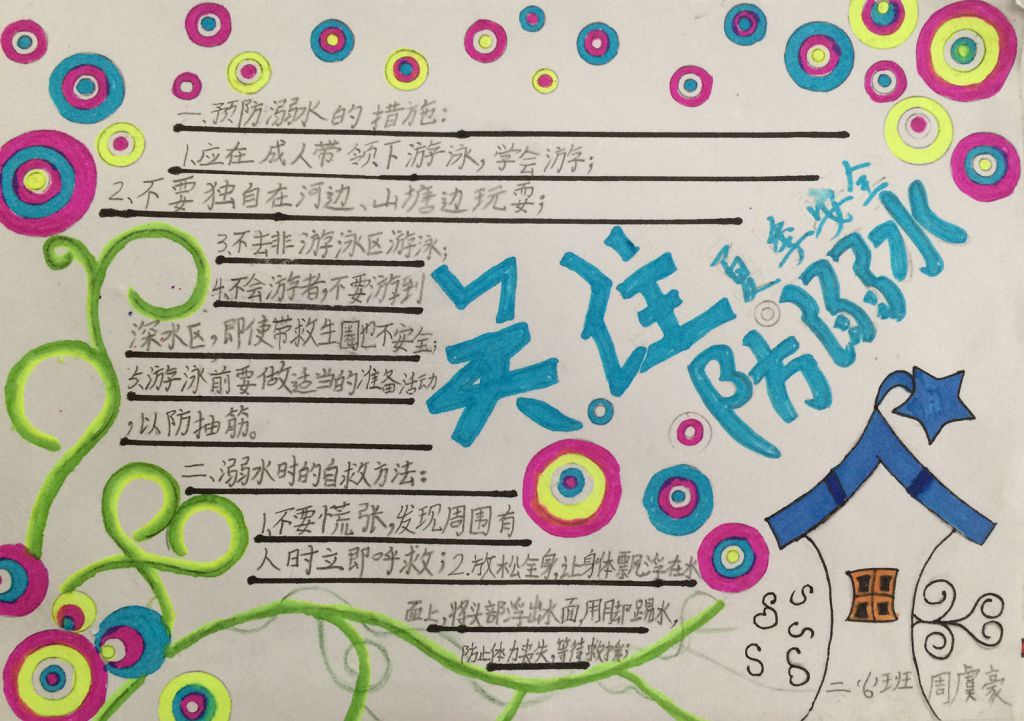 一、预防溺水的措施:
1.应在成人带领下游泳,学会游字;
2、不要独自在河边、山塘边玩耍;
3.不去非游泳区游泳;
4.不会游字者,不要游到
深水区,即使带救生圈也不安全;
5.游泳前要做适当的准备活动
,以防抽筋。
二、溺水时的自救方法:
1.不要慌张,发现周围有
人时立即呼救;2.放松全身,让身体飘浮在水
面上,将头部浮出水面,用脚踢水,
防止体力丧失,等待救援;
关注
夏季安全
防溺水
二'6'班 周虞豪